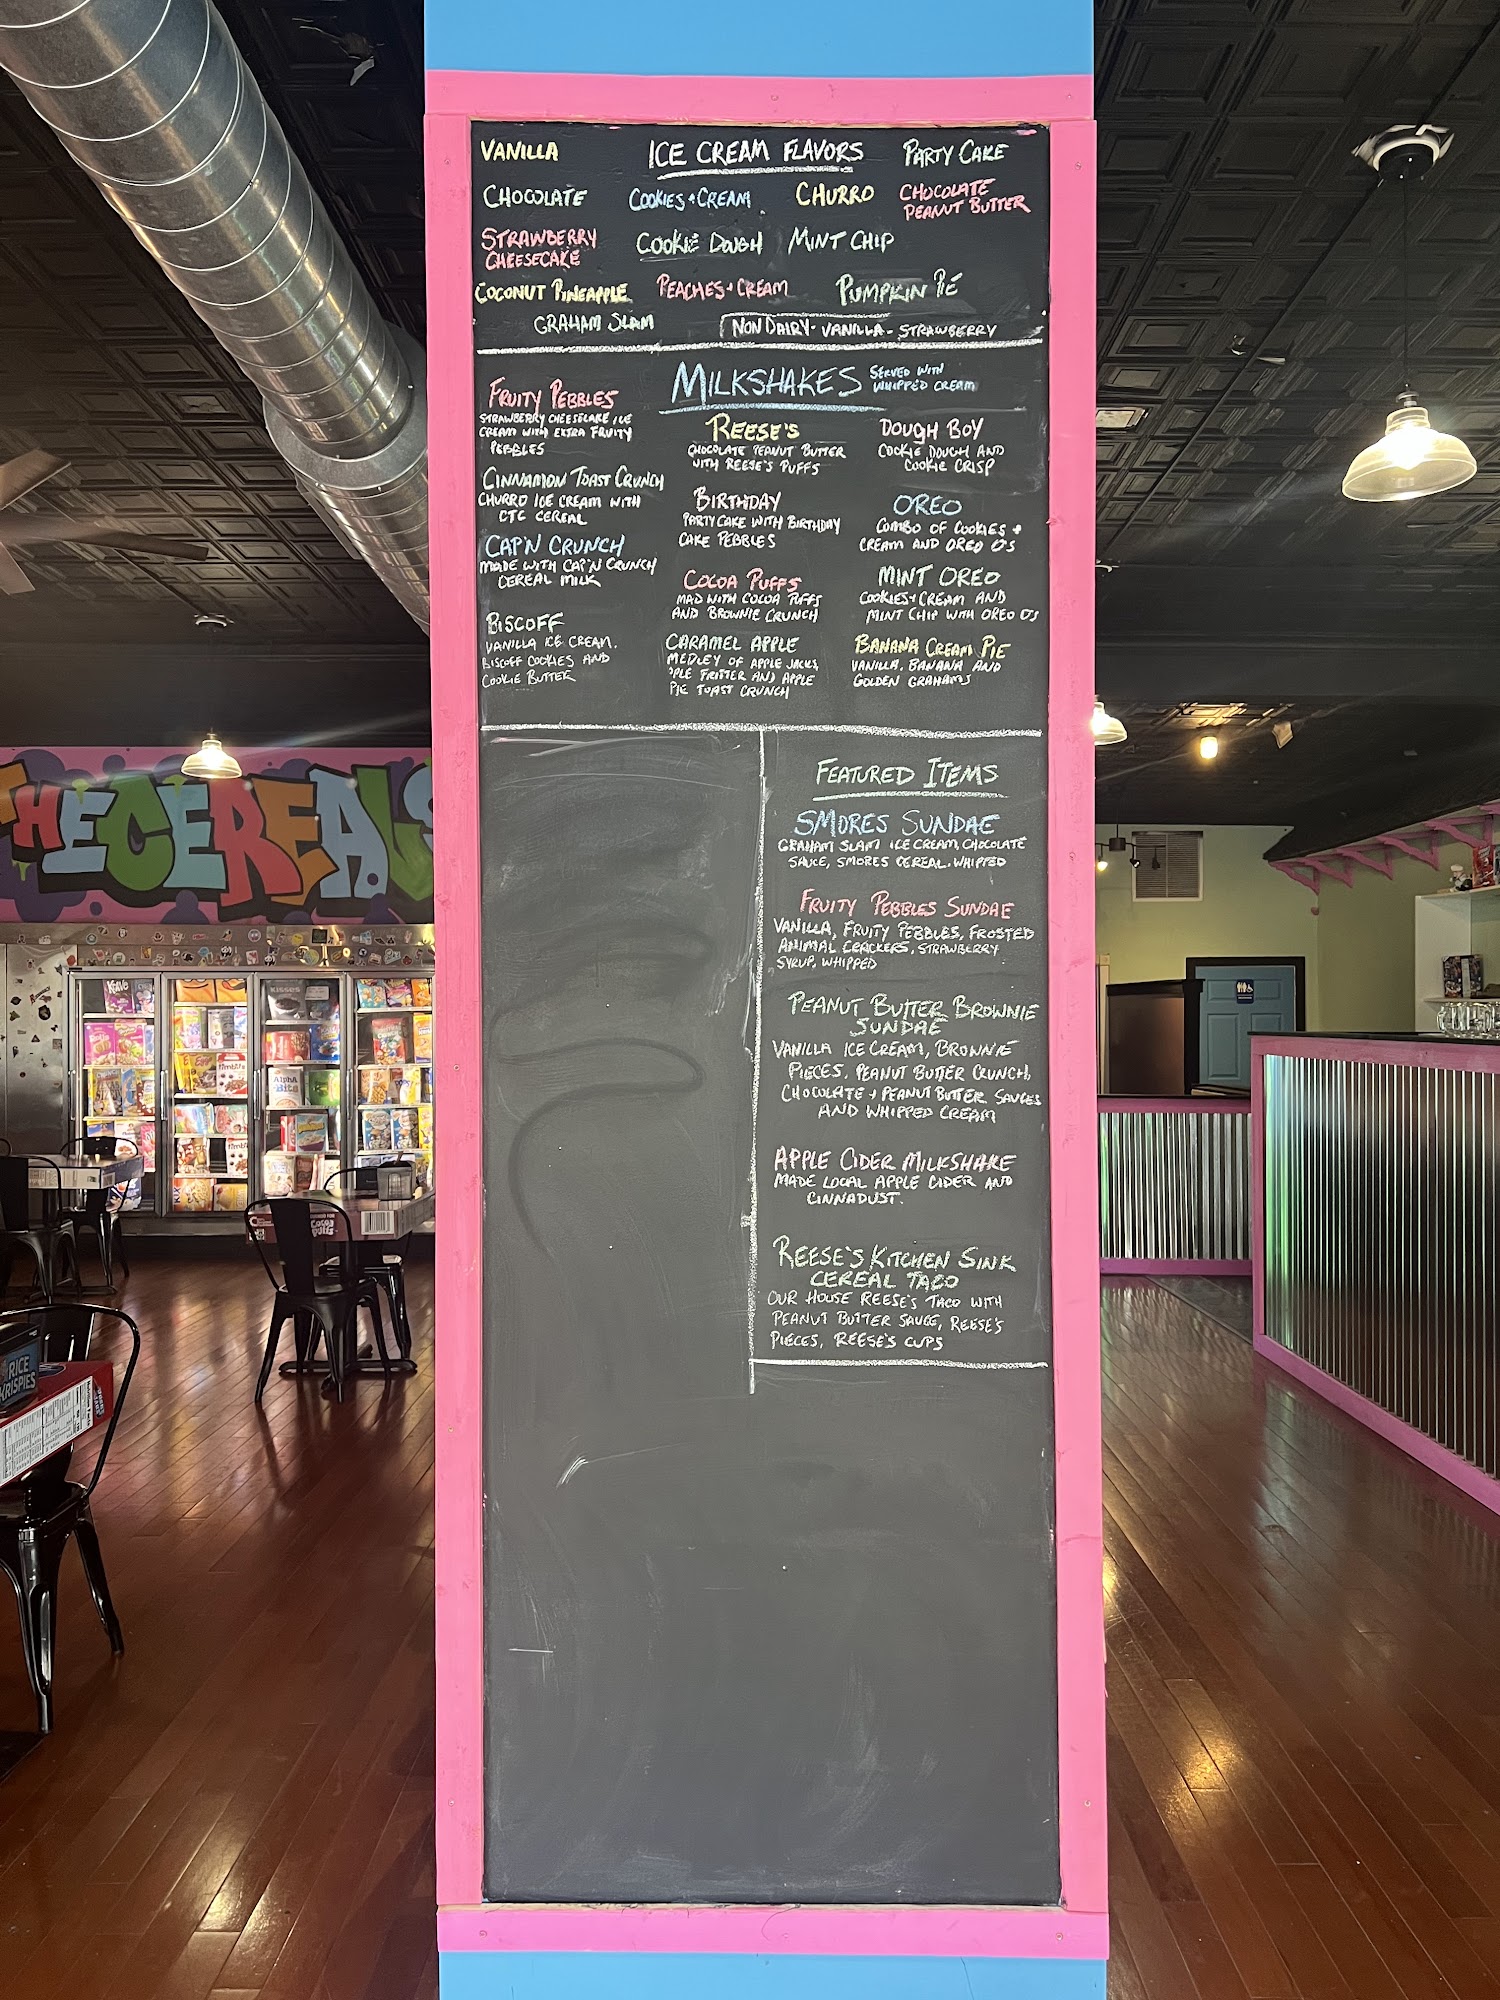 VANILLA
ICE CREAM FLAVORS
PARTY CAKE
CHOCOLATE
COOKIES + CREAM
CHURRO
CHOCOLATE
PEANUT BUTTER
STRAWBERRY
CHEESECAKE
COOKIE DOUGH
MINT CHIP
COCONUT PINEAPPLE
PEACHES + CREAM
PUMPKIN PIE
GRAHAM SLAM
NON DAIRY - VANILLA - STRAWBERRY
MILKSHAKES
SERVED WITH
WHIPPED CREAM
FRUITY PEBBLES
STRAWBERRY CHEESECAKE ICE
CREAM WITH EXTRA FRUITY
PEBBLES
CINNAMON TOAST CRUNCH
CHURRO ICE CREAM WITH
CTC CEREAL
CAP'N CRUNCH
MADE WITH CAP'N CRUNCH
CEREAL MILK
BISCOFF
VANILLA ICE CREAM,
BISCOFF COOKIES AND
COOKIE BUTTER
REESE'S
CHOCOLATE PEANUT BUTTER
WITH REESE'S PUFFS
BIRTHDAY
PARTY CAKE WITH BIRTHDAY
CAKE PEBBLES
COCOA PUFFS
MAD WITH COCOA PUFFS
AND BROWNIE CRUNCH
CARAMEL APPLE
MEDLEY OF APPLE JACKS,
PPLE FRITTER AND APPLE
PIE TOAST CRUNCH
DOUGH BOY
COOKIE DOUGH AND
COOKIE CRISP
OREO
COMBO OF COOKIES +
CREAM AND OREO O'S
MINT OREO
COOKIES + CREAM AND
MINT CHIP WITH OREO O'S
BANANA CREAM PIE
VANILLA, BANANA AND
GOLDEN GRAHAMS
FEATURED ITEMS
SMORES SUNDAE
GRAHAM SLAM ICE CREAM, CHOCOLATE
SAUCE, SMORES CEREAL, WHIPPED
FRUITY PEBBLES SUNDAE
VANILLA, FRUITY PEBBLES, FROSTED
ANIMAL CRACKERS, STRAWBERRY
SYRUP, WHIPPED
PEANUT BUTTER BROWNIE
SUNDAE
VANILLA ICE CREAM, BROWNIE
PIECES, PEANUT BUTTER CRUNCH,
CHOCOLATE + PEANUT BUTTER SAUCES
AND WHIPPED CREAM
APPLE CIDER MILKSHAKE
MADE LOCAL APPLE CIDER AND
CINNADUST.
REESE'S KITCHEN SINK
CEREAL TACO
OUR HOUSE REESE'S TACO WITH
PEANUT BUTTER SAUCE, REESE'S
PIECES, REESE'S CUPS
THE CEREAL
KISSES
Alpha
Bits
Cocoa
Puffs
RICE
KRISPIES